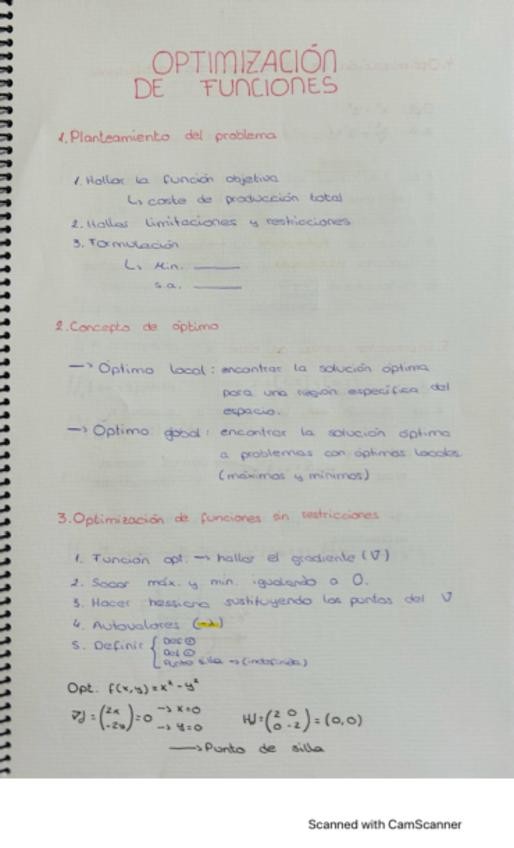 OPTIMIZACIÓN
DE FUNCIONES
1. Planteamiento del problema
1. Hallar la función objetivo
↳ coste de producción total
2. Hallar limitaciones y restricciones
3. Formulación
↳ Min. ____
s.a. ____
2. Concepto de óptimo
→ Óptimo local: encontrar la solución óptima
para una región específica del
espacio.
→ Óptimo global: encontrar la solución óptima
a problemas con óptimos locales
(máximos y mínimos)
3. Optimización de funciones sin restricciones
1. Función opt. → hallar el gradiente (∇)
2. Sacar máx. y min. igualando a 0.
3. Hacer hessiana sustituyendo los puntos del ∇
4. Autovalores (-λ)
5. Definir {
Punto silla → (indefinida)
Opt. f(x,y) = x² - y²
∇f = (2x -2y) = 0 → x=0 → y=0 Hf = (2 0 0 -2) = (0,0)
→ Punto de silla
Scanned with CamScanner